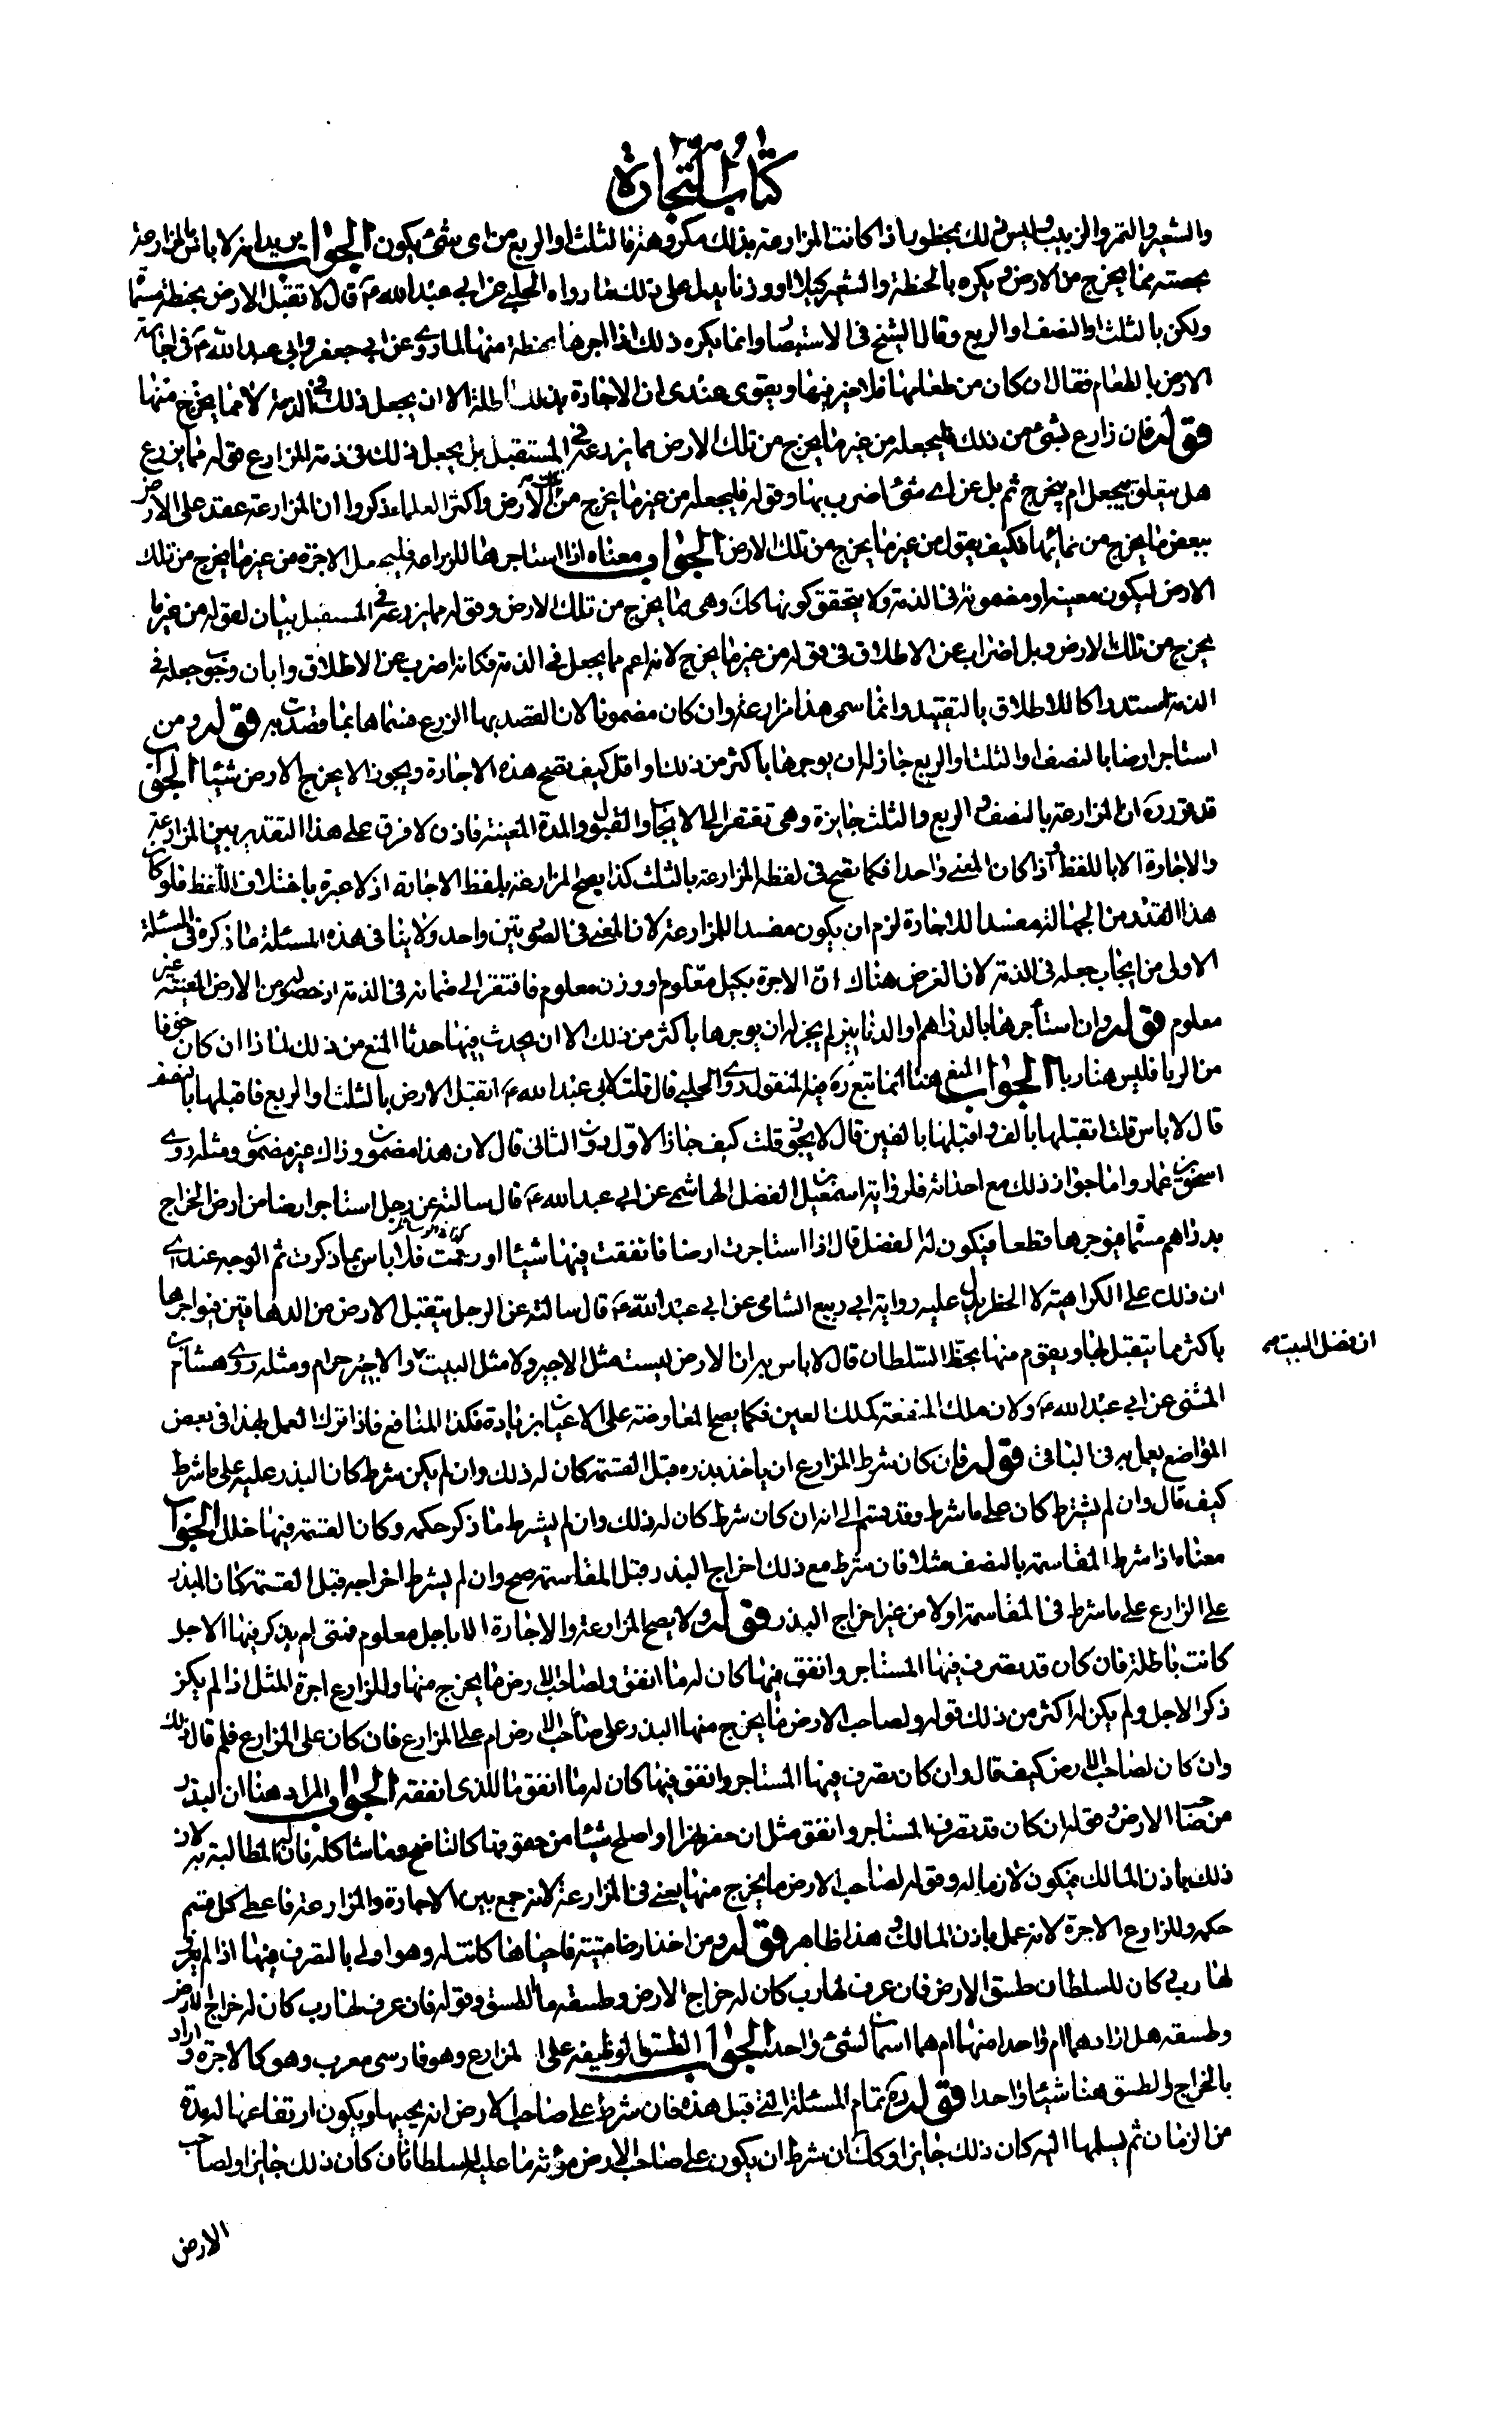 كتاب التجارة
والشعير والتمر والزبيب وليس ذلك بمحظور اذا كانت المزارعة بذلك مكروهة فالثلث او الربع من اى شئ يكون الجواب يريد انه لا باس بالمزارعة
بحصته مما يخرج من الارض ويكره بالحنطة والشعير كيلا او وزنا يدل على ذلك ما رواه الحلبي عن ابي عبد الله ع قال لا تقبل الارض بحنطة مسماة
ولكن بالثلث او النصف او الربع وقال الشيخ فى الاستبصار وانما يكره ذلك اذا اجرها بحنطة منها لما روى عن ابى جعفر وابى عبد الله ع فى اجارة
الارض بالطعام فقال ان كان من طعامها فلا خير فيها ويقوى عندى ان الاجارة بذلك باطلة الا ان يجعل ذلك فى الذمة لا مما يخرج منها
قوله فان زارع بشئ من ذلك فليجعله من غير ما يخرج من تلك الارض مما يزرعه فى المستقبل بل يجعل ذلك فى ذمة المزارع قوله مما يزرع
هل يتعلق بيجعل ام بيخرج ثم بل عن اى شئ اضرب بها وقوله فليجعله من غير ما يخرج من تلك الارض واكثر العلماء ذكروا ان المزارعة عقد على الارض
ببعض ما يخرج من نمائها فكيف يقول من غير ما يخرج من تلك الارض الجواب معناه اذا استاجرها للزراعة فليجعل الاجرة من غير ما يخرج من تلك
الارض ليكون معينه او مضمونة فى الذمة ولا يتحقق كونها كك وهى مما يخرج من تلك الارض وقوله مما يزرعه فى المستقبل بيان لقوله من غير ما
يخرج من تلك الارض وبل اضراب عن الاطلاق فى قوله من غير ما يخرج لانه اعم مما يجعل فى الذمة فكانه اضرب عن الاطلاق وابان وجوب جعله فى
الذمة استدراكا للاطلاق بالتقييد وانما سمى هذا مزارعة وان كان مضمونا لان القصد بها الزرع فسماها بما قصدت به قوله ومن
استاجر ارضا بالنصف او الثلث او الربع جاز له ان يوجرها باكثر من ذلك واقل كيف تصح هذه الاجارة ويجوز الا يخرج الارض شيئا الجواب
قد قرر ره ان المزارعة بالنصف والربع والثلث جايزة وهى تفتقر الى الايجاب والقبول والمدة المعينة فاذن لا فرق على هذا التقدير بين المزارعة
والاجارة الا باللفظ واذا كان المعنى واحدا فكما تصح فى لفظه المزارعة بالثلث كذا يصح المزارعة بلفظ الاجارة اذ لا عبرة باختلاف اللفظ فلو كان
هذا القدر من الجهالة مفسدا للاجارة لزم ان يكون مفسدا للمزارعة لان المعنى فى الصورتين واحد ولا ينافى هذه المسئلة ما ذكره فى المسئلة
الاولى من ايجاب جعله فى الذمة لان الغرض هناك ان الاجرة بكيل معلوم او وزن معلوم فافتقر الى ضمانه فى الذمة اذ حصوله من الارض المعينة غير
معلوم قوله وان استأجرها بالدراهم او الدنانير لم يجز له ان يوجرها باكثر من ذلك الا ان يحدث فيها حدثا المنع من ذلك لماذا ان كان خوفا
من الربا فليس هنا ربا الجواب المنع هنا انما تبع ره فيه المنقول روى الحلبي قال قلت لابى عبد الله ع اتقبل الارض بالثلث او الربع فاقبلها بالنصف
قال لا باس قلت اتقبلها بالف واقبلها بالفين قال لا يجوز قلت كيف جاز الاول دون الثانى قال لان هذا مضمون وذاك غير مضمون ومثله روى
اسحق بن عمار واما جواز ذلك مع احداثه فلرواية اسمعيل بن الفضل الهاشمى عن ابى عبد الله ع قال سالته عن رجل استاجر ارضا من ارض الخراج
بدراهم مسماة فيوجرها قطعا فيكون له الفضل قال اذا استاجرت ارضا فانفقت فيها شيئا او رممت فلا باس بما ذكرت ثم الوجه عندى
ان ذلك على الكراهية لا الحظر يدل عليه رواية ابى ربيع الشامى عن ابى عبد الله ع قال سالته عن الرجل يتقبل الارض من الدهاقين فيواجرها
باكثر مما يتقبل لها ويقوم منها بحظ السلطان قال لا باس به ان الارض ليست مثل الاجير ولا مثل البيت والاجير حرام ومثله روى هشام بن
ان فضل البيت
المثنى عن ابى عبد الله ع ولان ملك المنفعة كملك العين فكما يصح المعاوضة على الاعيان بزيادة فكذا المنافع فاذا ترك العمل بهذا فى بعض
المواضع يعمل به فى الباقى قوله فان كان شرط المزارع ان ياخذ بذره قبل القسمة كان له ذلك وان لم يكن شرط كان البذر عليه على ما شرط
كيف قال وان لم يشترط كان على ما شرط وقد قسم الى انه ان كان شرط كان له ذلك وان لم يشرط ما ذكر حكمه وكان القسمة فيها خلل الجواب
معناه اذا شرط المقاسمة بالنصف مثلا فان شرط مع ذلك اخراج البذر قبل المقاسمة صح وان لم يشرط اخراجه قبل القسمة كان البذر
على الزارع على ما شرط فى المقاسمة اولا من غير اخراج البذر قوله ولا يصح المزارعة والاجارة الا باجل معلوم فمتى لم يذكر فيها الاجل
كانت باطلة فان كان قد تصرف فيها المستاجر وانفق فيها كان له ما انفق ولصاحب الارض ما يخرج منها وللمزارع اجرة المثل اذا لم يكن
ذكر الاجل ولم يكن له اكثر من ذلك قوله ولصاحب الارض ما يخرج منها البذر على صاحب الارض ام على المزارع فان كان على المزارع فلم قال ذلك
وان كان لصاحب الارض كيف قال وان كان تصرف فيها المستاجر وانفق فيها كان له ما انفق ما الذى انفقه الجواب المراد هنا ان البذر
من صاحب الارض وقوله ان كان قد تصرف المستاجر وانفق مثل ان حفر نهرا او اصلح شيئا من حقوقها كالناضح وما شاكله فان له المطالبة به لان
ذلك باذن المالك فيكون لازما له وقوله لصاحب الارض ما يخرج منها يعنى فى المزارعة لانه جمع بين الاجارة والمزارعة فاعطى كل قسم
حكمه وللمزارع الاجرة لانه عمل باذن المالك وهذا ظاهر قوله ومن اخذ ارضا ميتة فاحياها كانت له وهو اولى بالتصرف فيها اذا لم يعرف
لها رب وكان للسلطان طسق الارض فان عرف لها رب كان له خراج الارض وطسقه ما الطسق وقوله فان عرف لها رب كان له خراج الارض
وطسقه هل ارادهما ام واحدا منهما ام هما اسمان لشئ واحد الجواب الطسق الوظيفه على المزارع وهو فارسى معرب وهو كالاجرة واراد
بالخراج والطسق هنا شيئا واحدا قوله ره تمام المسئلة التى قبل هذه فان شرط على صاحب الارض انه يحييها ويكون ارتفاعها له مدة
من الزمان ثم يسلمها اليه كان ذلك جايزا وكك ان شرط ان يكون على صاحب الارض مؤنه ما عليه للسلطان كان ذلك جايزا ولصاحب
الارض